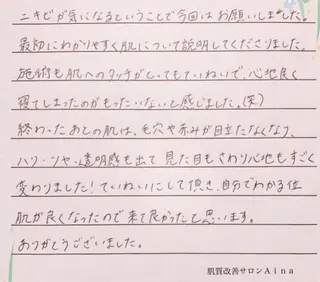 ニキビが気になるということで今回はお願いしました。
最初にわかりやすく肌について説明してくださりました。
施術も肌へのタッチがとってもていねいで、心地良く
寝てしまったのがもったいないと感じました。(笑)
終わったあとの肌は、毛穴や赤みが目立たなくなり、
ハリ・ツヤ・透明感も出て見た目もさわり心地もすごく
変わりました!ていねいにして頂き、自分でわかる位
肌が良くなったので来て良かったと思います。
ありがとうございました。
肌質改善サロンAina